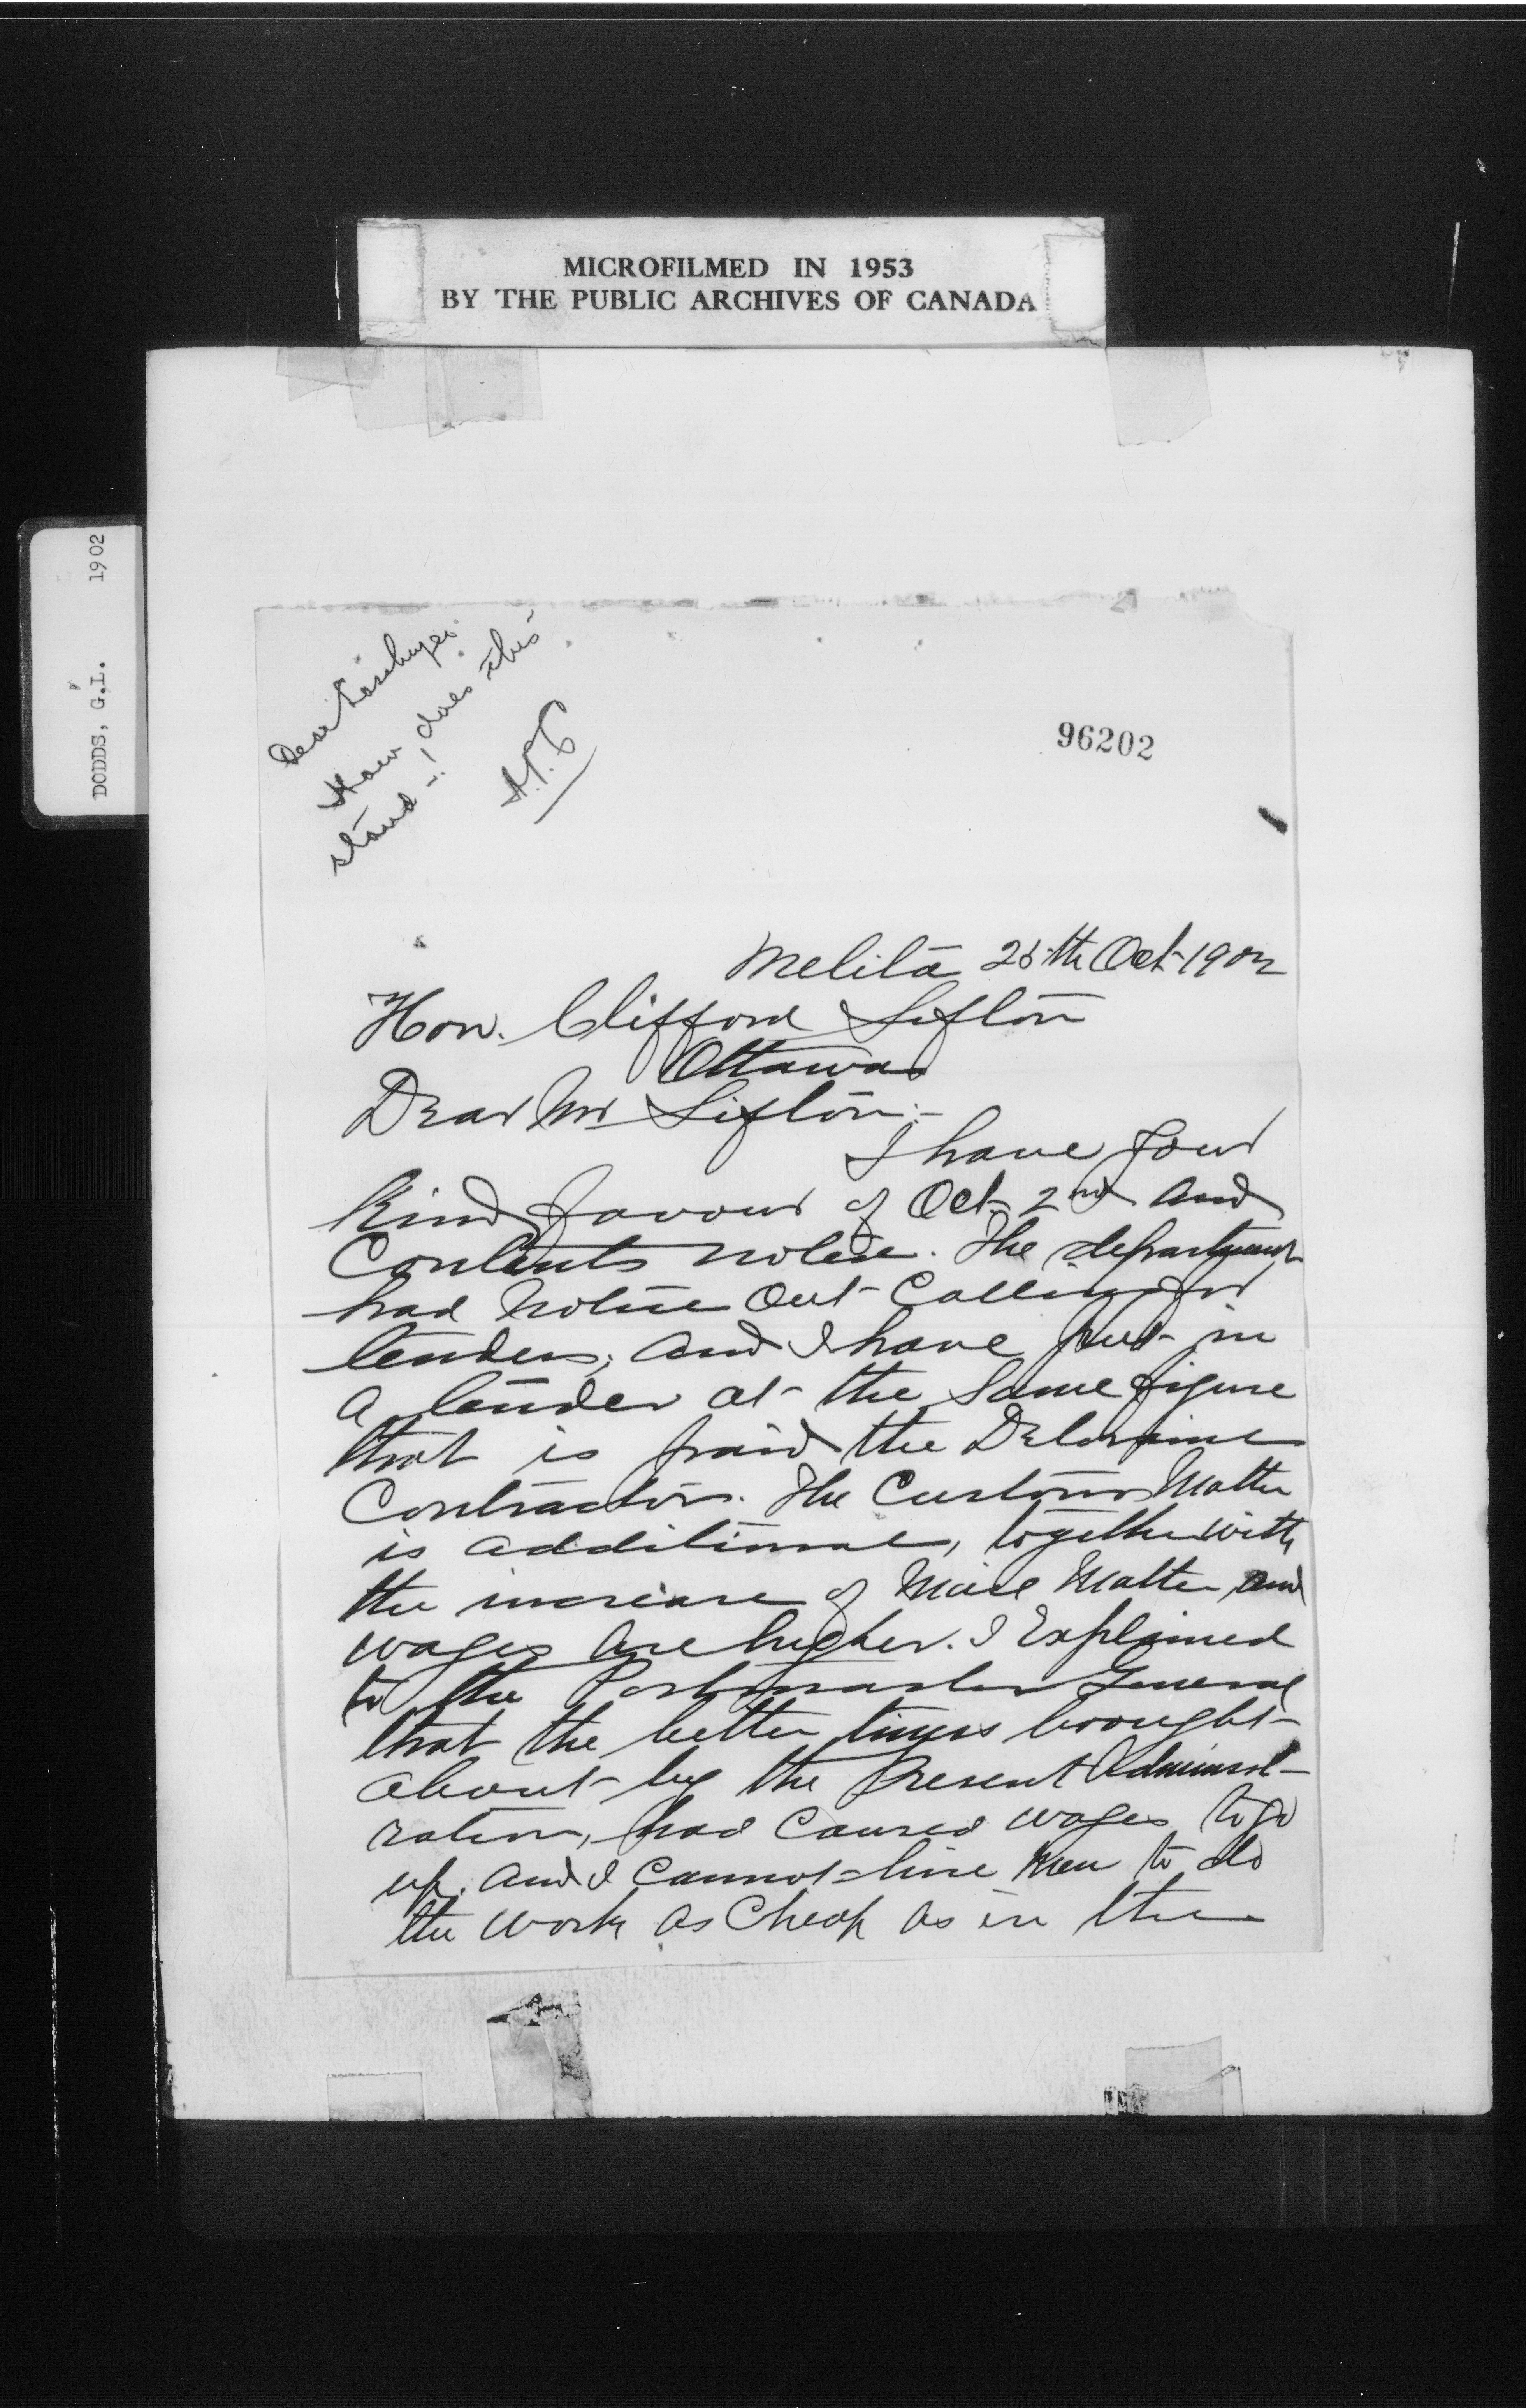 MICROFILMED IN 1953
BY THE PUBLIC ARCHIVES OF CANADA
DODDS, G.L. 1902
Dear
How does this
stand -!
96202
Melita 25th Oct 1902
Hon. Clifford Sifton
Ottawa
Dear Mr Sifton:-
I have your
kind favour of Oct 2nd and
Contents noted. The department
had notice out calling for
tenders, and I have put in
a tender at the same figure
that is paid the Deloraine
Contractor. The Customs Matter
is additional, together with
the increase of Mail Matter and
wages are higher. I Explained
to the Postmaster General
that the better times brought
about by the Present Administ-
ration, had caused wages to go
up. and I cannot hire men to do
the work as cheap as in the